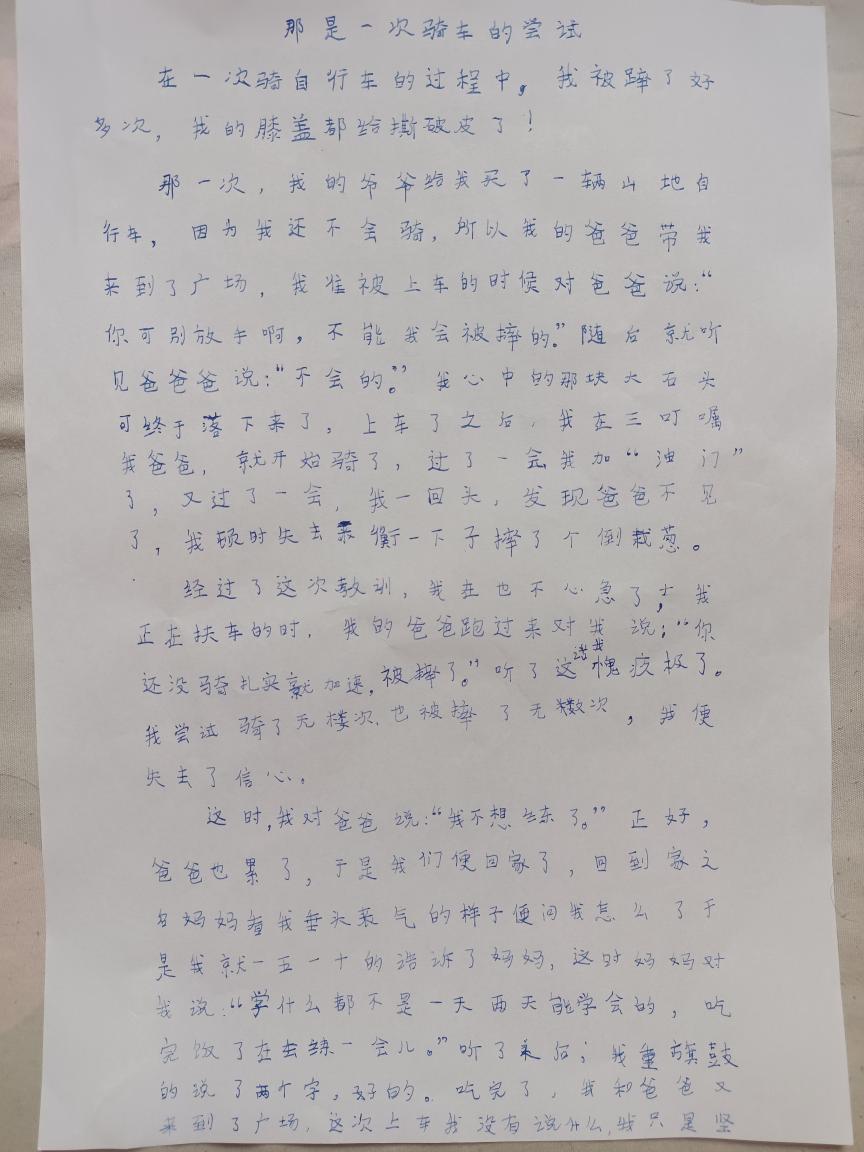 那是一次骑车的尝试
在一次骑自行车的过程中，我被蹿了好
多次，我的膝盖都给撕破皮了！
那一次，我的爷爷给我买了一辆山地自
行车，因为我还不会骑，所以我的爸爸带我
来到了广场，我准被上车的时候对爸爸说：“
你可别放手啊，不能我会被摔的。”随后就听
见爸爸爸说：“不会的。”我心中的那块大石头
可终于落下来了，上车了之后，我在三叮嘱
我爸爸，就开始骑了，过了一会我加“油门”
了，又过了一会，我一回头，发现爸爸不见
了，我顿时失去衡一下子摔了个倒栽葱。
经过了这次教训，我在也不心急了，我
正在扶车的时，我的爸爸跑过来对我说：“你
还没骑扎实就加速，被摔了。”听了这话我愧疚极了。
我尝试骑了无楼次，也被摔了无数次，我便
失去了信心。
这时，我对爸爸说：“我不想练了。”正好，
爸爸也累了，于是我们便回家了，回到家之
后妈妈看我垂头丧气的样子便问我怎么了于
是我就一五一十的告诉了妈妈，这时妈妈对
我说：“学什么都不是一天两天能学会的，吃
完饭了在去练一会儿。”听了之后；我重旗鼓
的说了两个字，好的。吃完了，我和爸爸又
来到了广场，这次上车我没有说什么，我只是坚